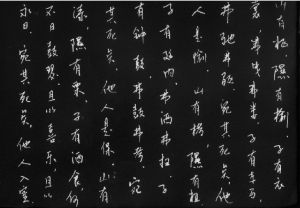 山有枢，隰有榆。子有衣
裳，弗曳弗娄。子有车马，
弗驰弗驱。宛其死矣，他
人是愉。山有栲，隰有杻。
子有廷内，弗洒弗扫。子
有钟鼓，弗鼓弗考。宛
其死矣，他人是保。山有
漆，隰有栗。子有酒食，何
不日鼓瑟，且以喜乐，且以
永日。宛其死矣，他人入室。